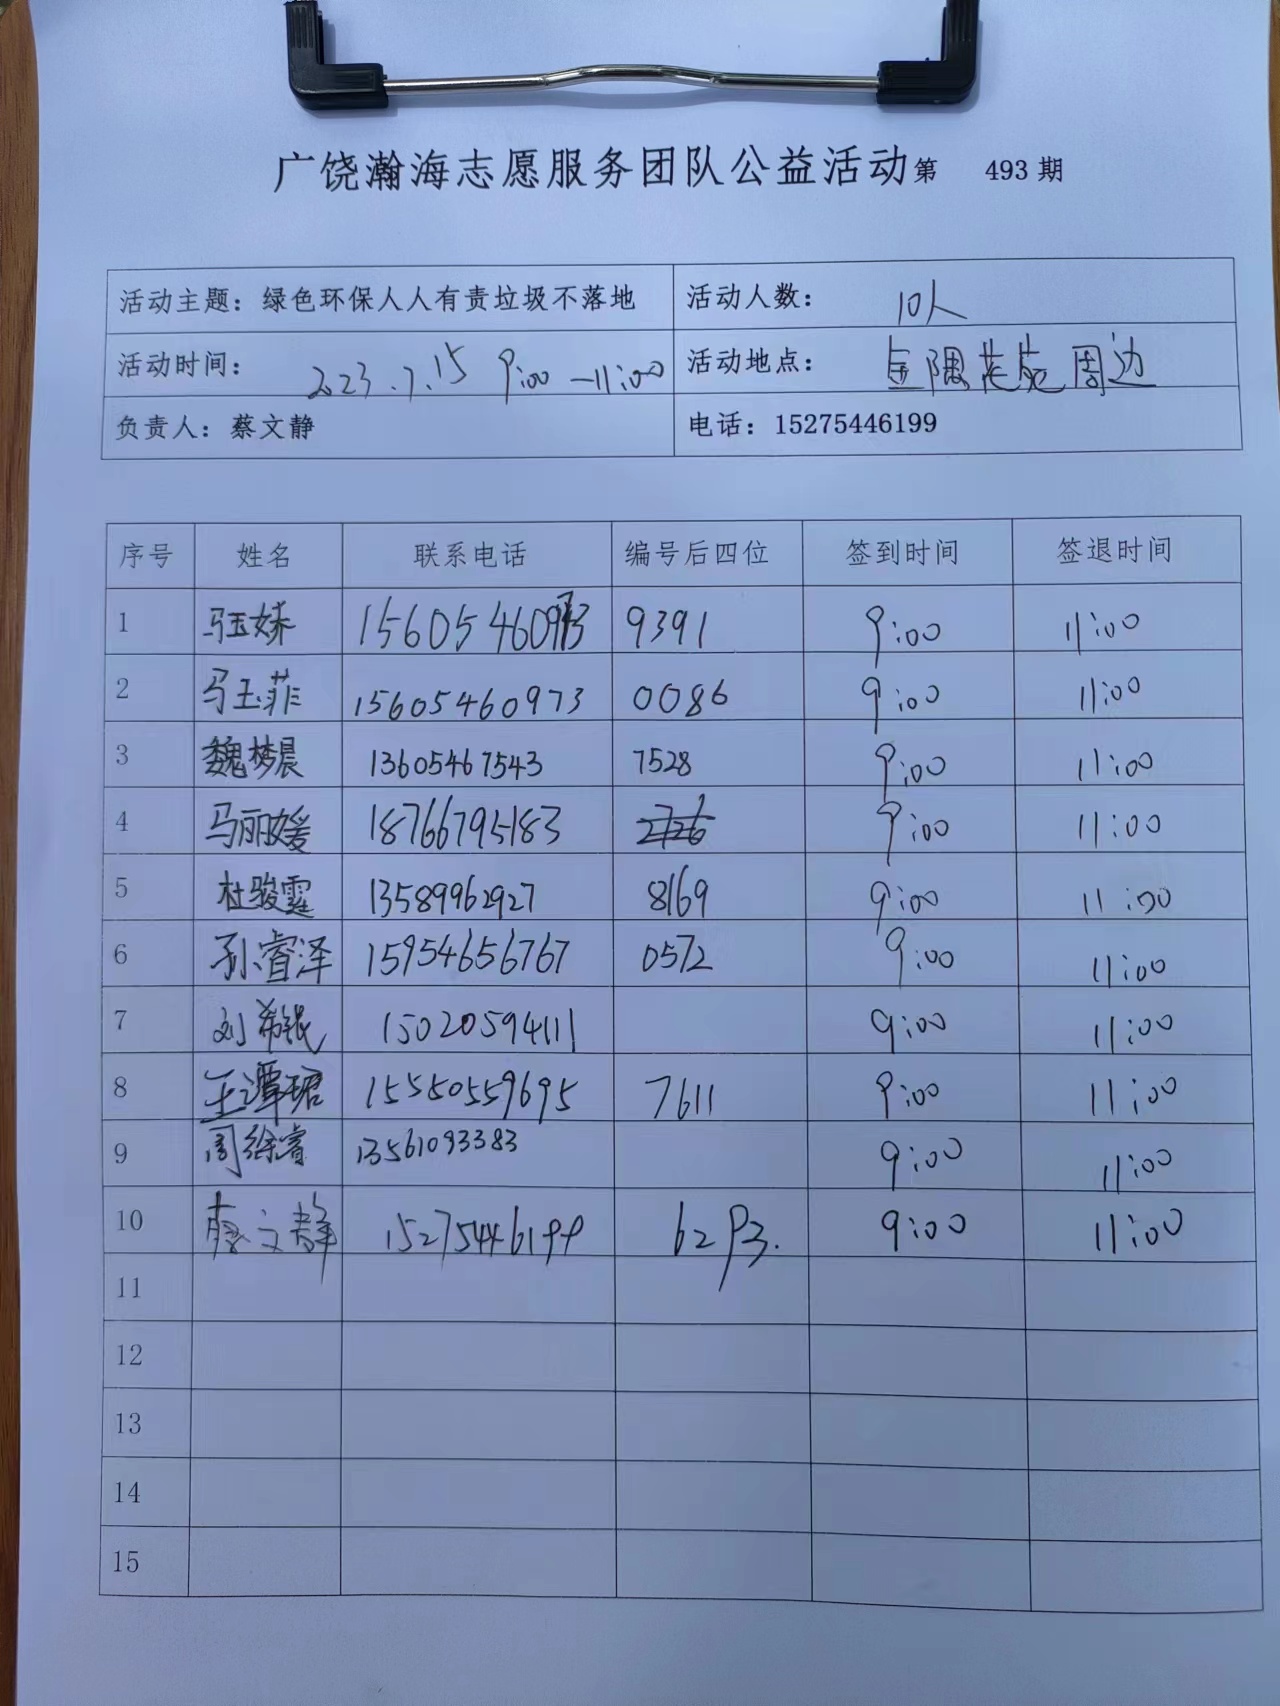 广饶瀚海志愿服务团队公益活动第 493 期
活动主题：绿色环保人人有责垃圾不落地 活动人数： 10人
活动时间： 2023.7.15 9:00—11:00 活动地点： 金隅花苑周边
负责人：蔡文静 电话：15275446199
序号 姓名 联系电话 编号后四位 签到时间 签退时间
1 马玉姝 15605460973 9391 9:00 11:00
2 马玉菲 15605460973 0086 9:00 11:00
3 魏梦晨 13605467543 7528 9:00 11:00
4 马丽媛 18766795183 9:00 11:00
5 杜骏霆 13589962927 8169 9:00 11:00
6 孙睿泽 15954656767 0572 9:00 11:00
7 刘希锟 15020594111 9:00 11:00
8 王潭珺 15550559695 7611 9:00 11:00
9 周徐睿 13561093383 9:00 11:00
10 蔡文静 15275446199 6293. 9:00 11:00
11
12
13
14
15